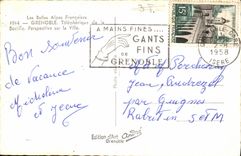 Les Belles Alpes Françaises
1914 - GRENOBLE. Téléphérique de la
Bastille. Perspective sur la Ville.
Bon Souvenir
de Vacance
Micheline
et
A MAINS FINES....
GANTS
FINS
DE
GRENOBLE
15F
1958
ISERE
Jean
par Guignes
Rabutin S et M
Edition d'Art André
Grenoble